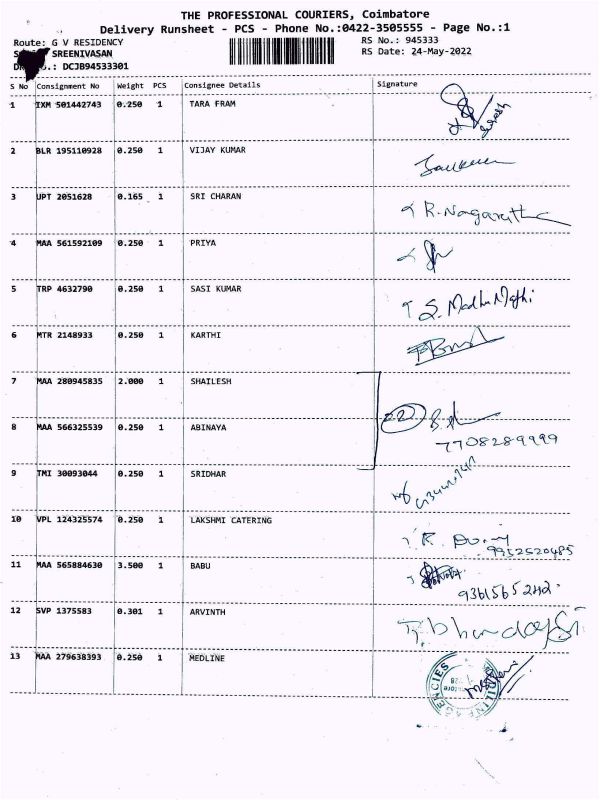 THE PROFESSIONAL COURIERS, Coimbatore
Delivery Runsheet - PCS - Phone No.:0422-3505555 - Page No.:1
Route: G V RESIDENCY
RS No.: 945333
SREENIVASAN
RS Date: 24-May-2022
.: DCJB94533301
S No Consignment No Weight PCS Consignee Details Signature
1 IXM 501442743 0.250 1 TARA FRAM
2 BLR 195110928 0.250 1 VIJAY KUMAR
3 UPT 2051628 0.165 1 SRI CHARAN
R. Nagaratha
4 MAA 561592109 0.250 1 PRIYA
5 TRP 4632790 0.250 1 SASI KUMAR
6 MTR 2148933 0.250 1 KARTHI
7 MAA 280945835 2.000 1 SHAILESH
8 MAA 566325539 0.250 1 ABINAYA
22
7708289999
9 TMI 30093044 0.250 1 SRIDHAR
10 VPL 124325574 0.250 1 LAKSHMI CATERING
9952520485
11 MAA 565884630 3.500 1 BABU
9361565242
12 SVP 1375583 0.301 1 ARVINTH
13 MAA 279638393 0.250 1 MEDLINE